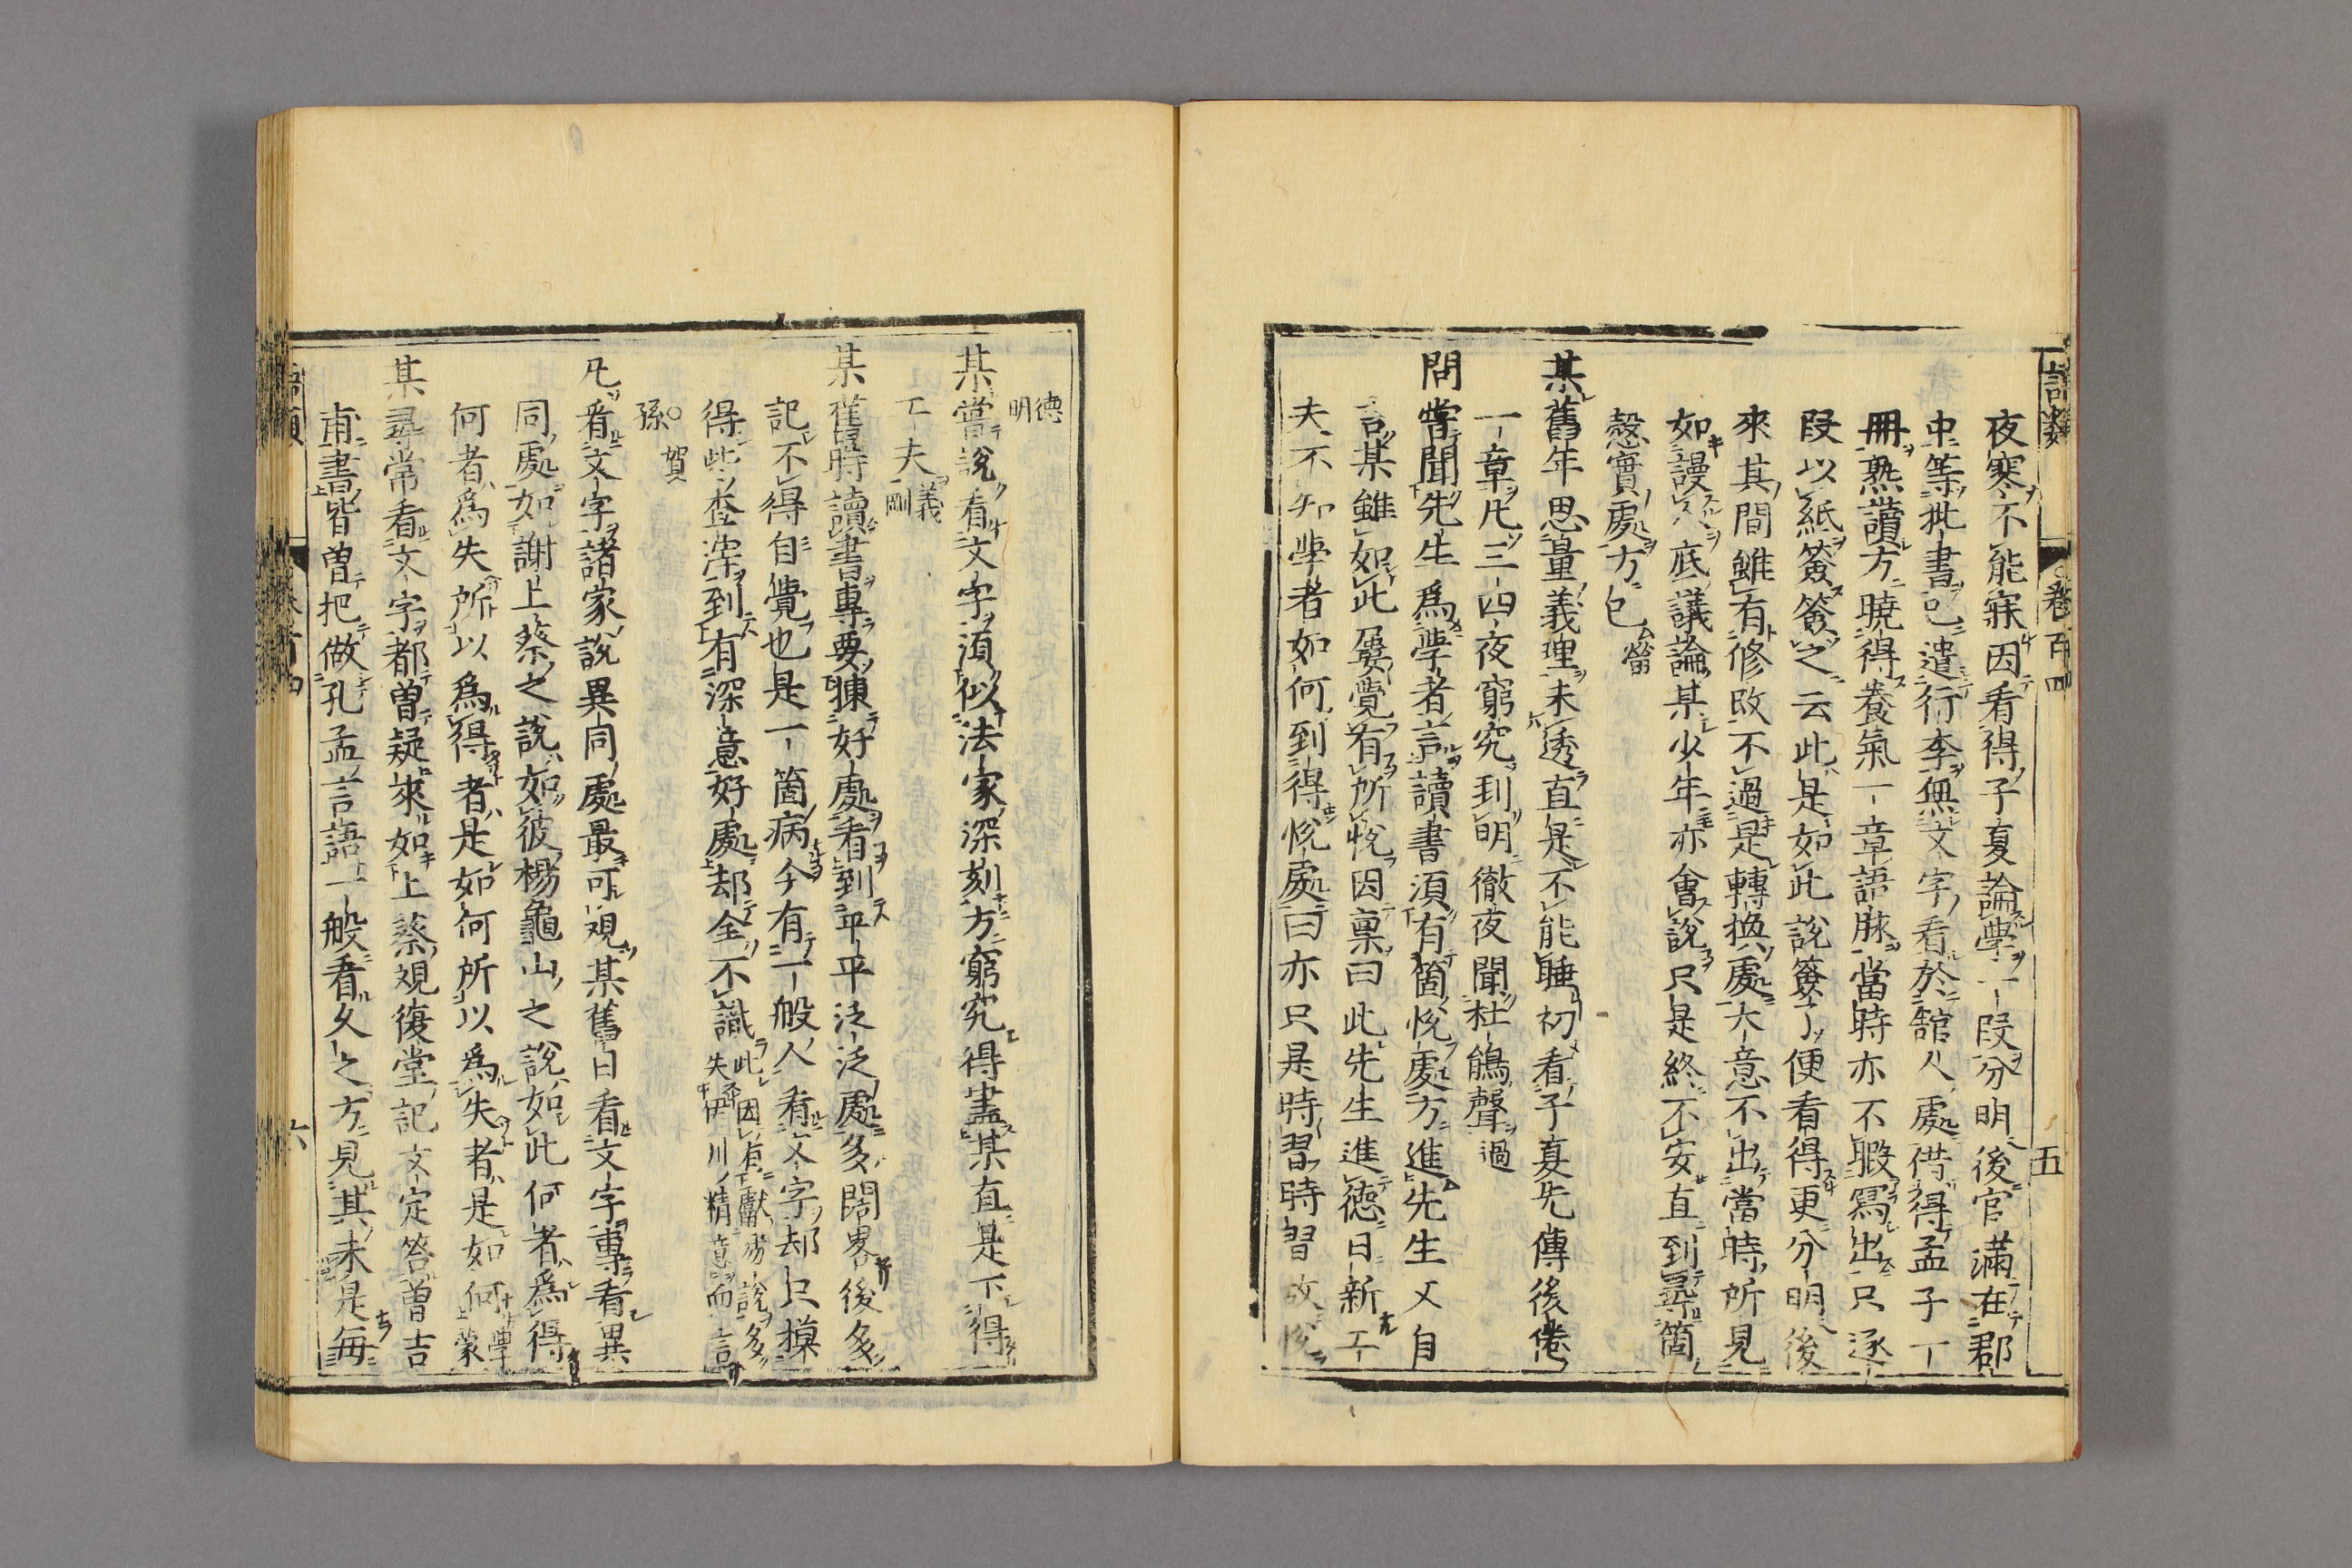 語類
卷百四
五
夜寒不能寐因看得子夏論學一段分明後官滿在郡
中等批書已遣行李無文字看於館人處借得孟子一
冊熟讀方曉得養氣一章語脉當時亦不暇寫出只逐
段以紙簽簽之云此是如此說簽了便看得更分明後
來其間雖有修改不過是轉換處大意不出當時所見
如謾人底議論某少年亦會說只是終不安直到尋箇
慤實處方已 𤀹
某舊年思量義理未透直是不能睡初看子夏先傳後倦
一章凡三四夜窮究到明徹夜聞杜鵑聲 過
問嘗聞先生爲學者言讀書須有箇悅處方進先生又自
言某雖如此屢覺有所悅因稟曰此先生進德日新工
夫不知學者如何到得悅處曰亦只是時習時習故悅
德
明
某嘗說看文字須似法家深刻方窮究得盡某直是下得
工夫 義
剛
某舊時讀書專要揀好處看到平平泛泛處多闊略後多
記不得自覺也是一箇病今有一般人看文字却只摸
得些查滓到有深意好處却全不識 此因有獻易說多
失伊川精意而言
○賀
孫
凡看文字諸家說異同處最可觀某舊日看文字專看異
同處如謝上蔡之說如彼楊龜山之說如此何者爲得
何者爲失所以爲得者是如何所以爲失者是如何 學
蒙
某尋常看文字都曾疑來如上蔡觀復堂記文定答曾吉
甫書皆曾把做孔孟言語一般看久之方見其未是每
語類
卷百四
六